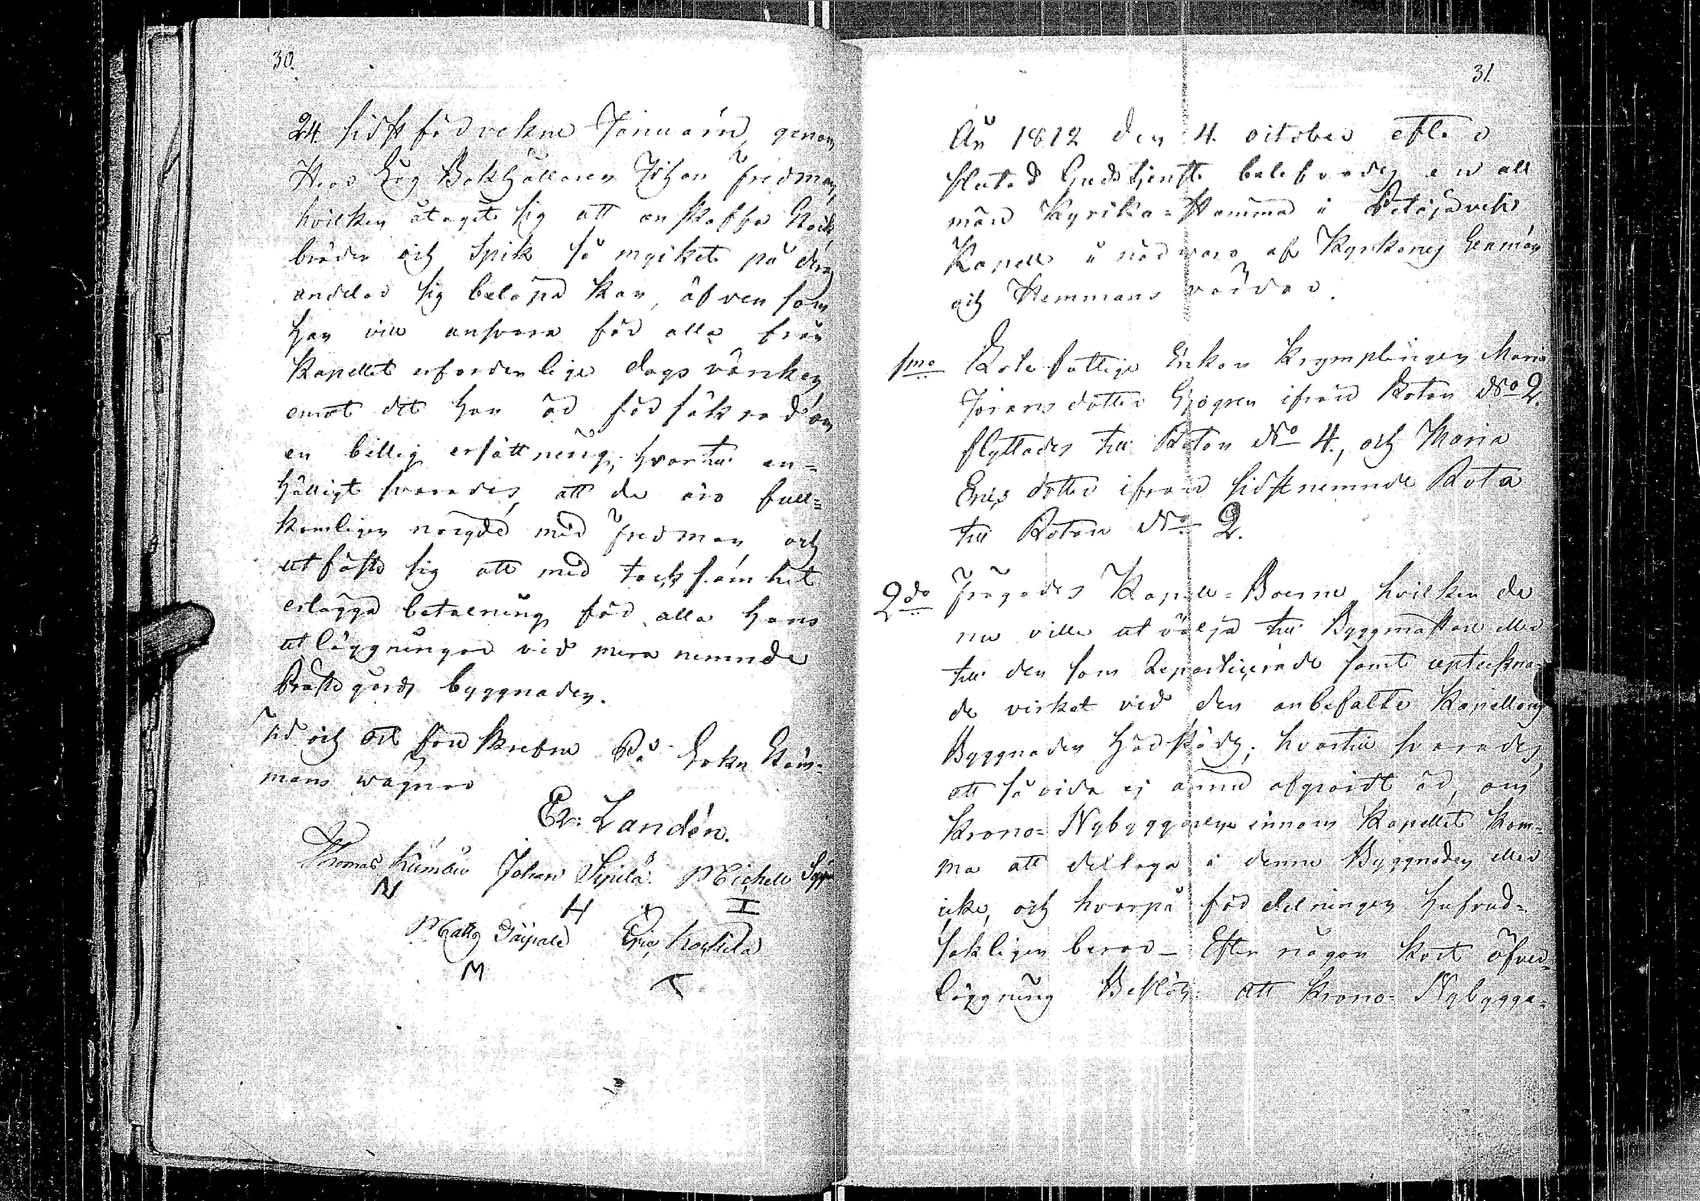 30.
24 sidst förvekne Januarii genom
Herr Bokhållaren Johan Fredman,
hvilken åtagit sig att anskaffa
bräder och Spik så mycket på deras
andelar sig belöpa kan, äfven som
han vill ansvara för alla från
Kapellet erforderlige dags värken
emot det han är försäkrad om
en billig ersättning, hvartil en-
hälligt svarades, att de äro full-
komligen nögde med Fredman och
utfäste sig att med tacksamhet
erlägga betalning för alla hans
utläggningar vid mera nemnde
Prästgårds byggnaden.
Tid och Ort föreskrefne På Sokne Stäm-
mans wägnar
Er: Landén.
Thomas Johan Sipilä Michell
N H I
Matts Eric
M T
31.
År 1812 den 4 october efter
slutad Gudstjenst balefvades en all
män Kyrko-Stämma i Petäjävesi
Kapell i närvaro af Kyrkones Sexmän
och Hemmans .
1mo Rote fattige Enkan Krymplingen Maria
Jörans dotter Sjögren ifrån Roten No 2.
flyttades till Roten No 4, och Maria
Erics dotter ifrån sidstnemnde Rota
till Roten No 2.
2do Frågades Kapell-Boerne hvilken de
nu ville utvälja till Byggmästare eller
till den som Reparticerade samt uptekna-
de virket vid den anbefalte Kapellans
Byggnaden Härstädes; hvartil svarades,
att så vida ej ännu afgordt är, om
Krono-Nybyggarena innom Kapellet kom-
ma att deltaga i denna Byggnaden eller
icke, och hvarpå fördelningen hufvud-
sakligen beror - Efter någon kort öfver-
läggning Beslöts: att Krono-Nybygga-